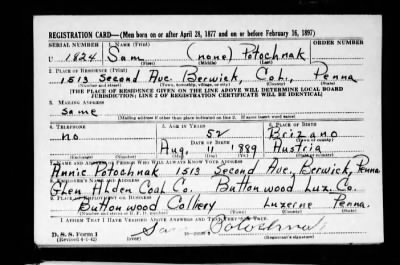 REGISTRATION CARD—(Men born on or after April 28, 1877 and on or before February 16, 1897)
SERIAL NUMBER 1. NAME (Print) ORDER NUMBER
U 1824 Sam (none) Potochnak
(First) (Middle) (Last)
2. PLACE OF RESIDENCE (Print)
1513 Second Ave. Berwick, Col., Penna
(Number and street) (Town, township, village, or city) (County) (State)
[THE PLACE OF RESIDENCE GIVEN ON THE LINE ABOVE WILL DETERMINE LOCAL BOARD
JURISDICTION; LINE 2 OF REGISTRATION CERTIFICATE WILL BE IDENTICAL]
3. MAILING ADDRESS
Same
[Mailing address if other than place indicated on line 2. If same insert word same]
4. TELEPHONE 5. AGE IN YEARS 6. PLACE OF BIRTH
no 52 Brizano
DATE OF BIRTH (Town or county)
Aug. 11 1889 Austria
(Exchange) (Number) (Mo.) (Day) (Yr.) (State or country)
7. NAME AND ADDRESS OF PERSON WHO WILL ALWAYS KNOW YOUR ADDRESS
Annie Potochnak 1513 Second Ave., Berwick, Penna
8. EMPLOYER'S NAME AND ADDRESS
Glen Alden Coal Co. Buttonwood Luz. Co.
9. PLACE OF EMPLOYMENT OR BUSINESS
Buttonwood Colliery Luzerne Penna.
(Number and street or R. F. D. number) (Town) (County) (State)
I AFFIRM THAT I HAVE VERIFIED ABOVE ANSWERS AND THAT THEY ARE TRUE.
D. S. S. Form 1 Sam Potochnak
(Revised 4-1-42) (over) (Registrant's signature)